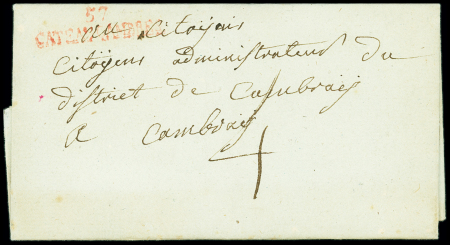 57
au citoyens
citoyens administrateur du
district de Cambray
a Cambray
4